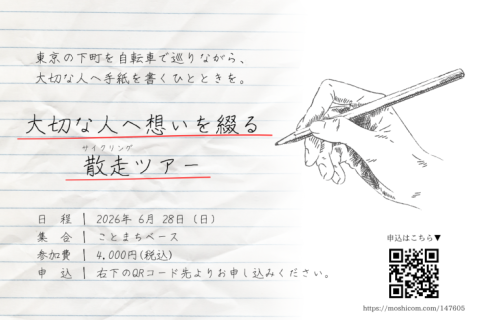 東京の下町を自転車で巡りながら、
大切な人へ手紙を書くひとときを。
大切な人へ想いを綴る
サイクリング
散走ツアー
日 程 | 2026年 6月 28日 (日)
集 合 | ことまちベース
参加費 | 4,000円(税込)
申 込 | 右下のQRコード先よりお申し込みください。
申込はこちら▼
https://moshicom.com/147605